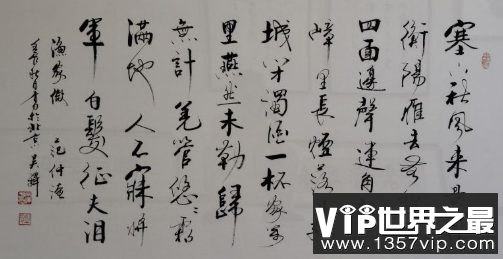 塞下秋風來
衡陽雁去無
四面邊聲連角
嶂里長煙落
城闭濁酒一杯家萬
里燕然未勒歸
無計羌管悠悠霜
滿地人不寐將
軍白髮征夫淚
漁家傲 范仲淹
秋日書於北京 吳
VIP世界之最
www.1357vip.com